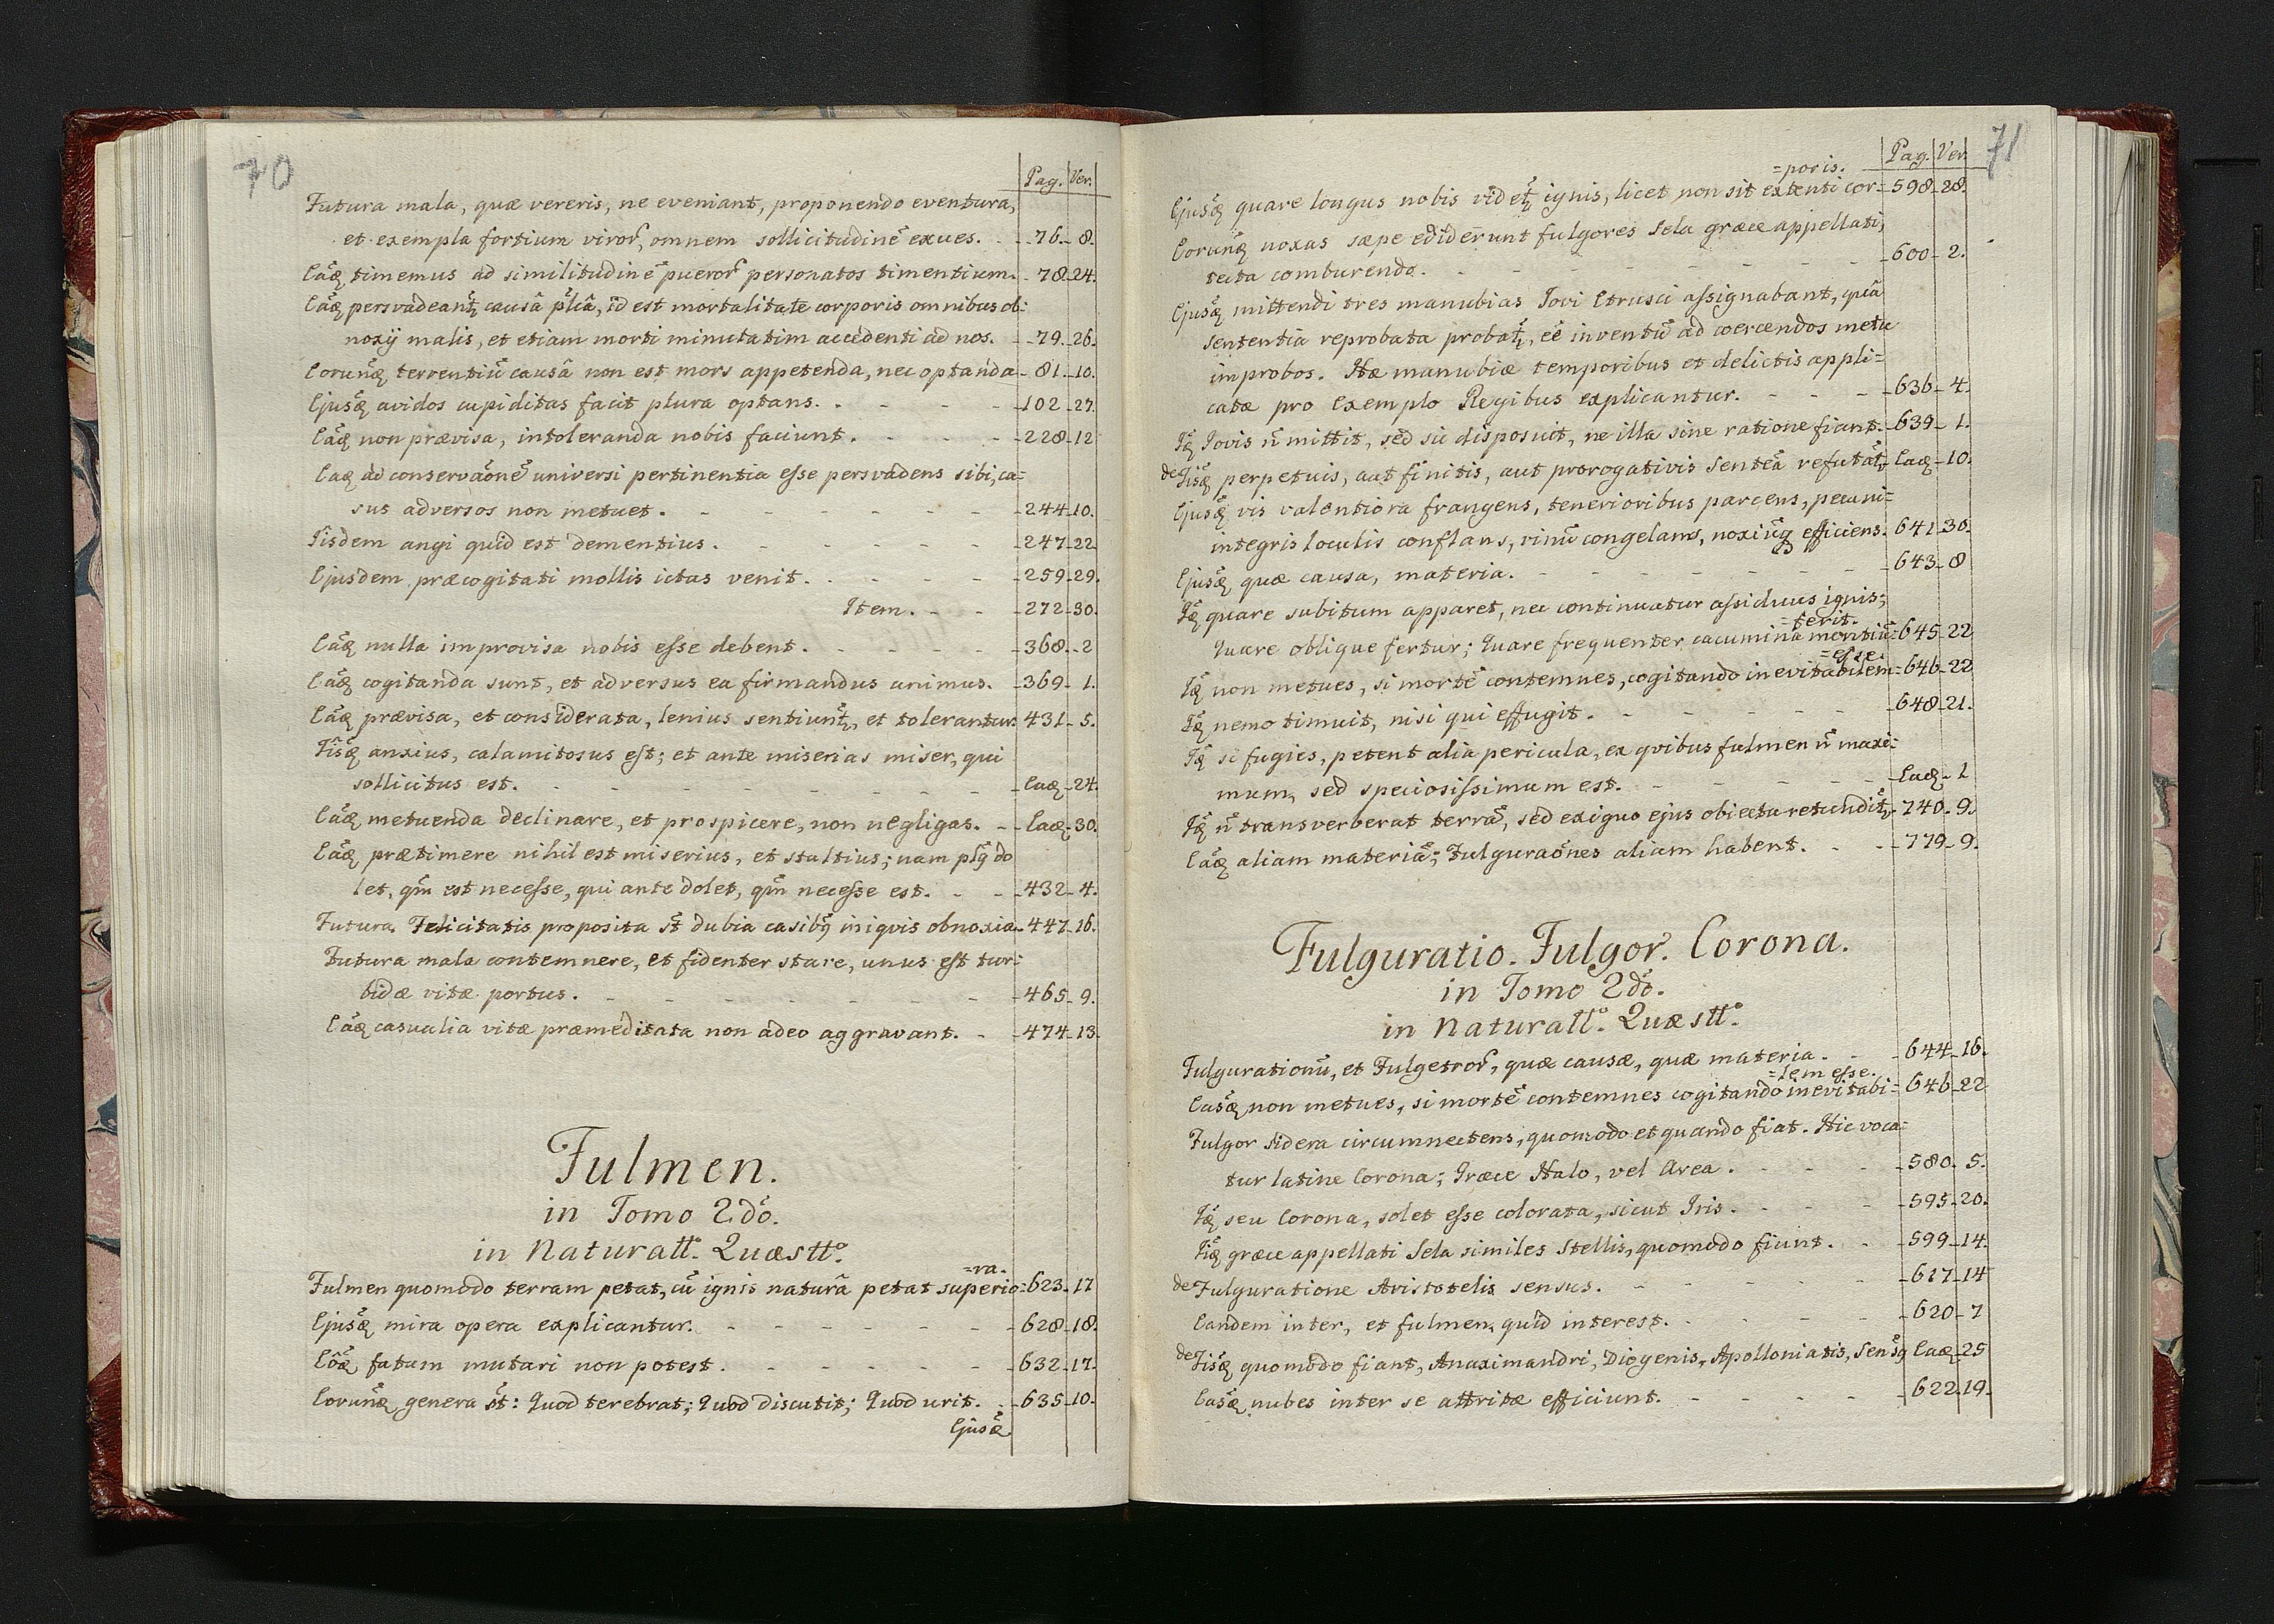 70
Pag. Ver.
Futura mala, quæ vereris, ne eveniant, proponendo eventura,
et exempla fortium viror, omnem sollicitudinē exues. - 76. 8.
Eáq timemus ad similitudinē pueror personatos timentium. - 78. 24.
Eáq persvadeant causâ plcâ, id est mortalitate corporis omnibus ob=
noxij malis, et etiam morti minutatim accedenti ad nos. - 79. 26.
Eorunq terrentiū causâ non est mors appetenda, nec optanda - 81. 10.
Ejusq avidos cupiditas facit plura optans. - 102. 27.
Eáq non prævisa, intoleranda nobis faciunt. - 228. 12
Eaq ad conservaōnē universi pertinentia esse persvadens sibi, ca=
sus adversos non metuet. - 244. 10.
Iisdem angi quid est dementius. - 247. 22
Ejusdem præcogitati mollis ictus venit. - 259. 29.
Item. - 272. 30.
Eáq nulla improvisa nobis esse debent. - 368. 2
Eáq cogitanda sunt, et adversus ea firmandus animus. - 369. 1.
Eáq prævisa, et considerata, lenius sentiunt, et tolerantur. 431. 5.
Iisq anxius, calamitosus est; et ante miserias miser, qui
sollicitus est. - Eaq. 24.
Eáq metuenda declinare, et prospicere, non negligas. - Eaq. 30.
Eáq prætimere nihil est miserius, et stultius; nam plq do
let, qm est necesse, qui ante dolet, qm necesse est. - 432. 4.
Futura Felicitatis proposita st dubia casibq iniqvis obnoxia. 447. 16.
Futura mala contemnere, et fidenter stare, unus est tur=
bidæ vitæ portus. - 465. 9.
Eáq casualia vitæ præmeditata non adeo aggravant. - 474. 13.
Fulmen.
in Tomo 2do.
in Naturall. Quæstt.
=ra.
Fulmen quomodo terram petat, cū ignis naturâ petat superio= 623. 17
Ejusq mira opera explicantur. - 628. 18.
Eōq fatum mutari non potest. - 632. 17.
Eorunq genera st: Quod terebrat; Quod discutit; Quod urit. - 635. 10.
Ejusq
71
Pag. Ver.
=poris.
Ejusq quare longus nobis videt ignis, licet non sit extenti cor= 598. 28.
Eorunq noxas sæpe ediderunt fulgores Sela græce appellati,
tecta comburendo. - 600. 2.
Ejusq mittendi tres manubias Jovi Etrusci assignabant, quâ
sententia reprobata probat, eē inventū ad coercendos metu
improbos. Hæ manubiæ temporibus et delictis appli=
catæ pro Exemplo Regibus explicantur. - 636. 4.
Iq Jovis n mittit, sed sic disposuit, ne illa sine ratione fiant. 639. 1.
de Iisq perpetuis, aut finitis, aut prorogativis Sentēa refutat. Eaq. 10.
Ejusq vis valentiora frangens, tenerioribus parcens, pecuni=
integris loculis conflans, vinū congelans, noxiūq efficiens. 641. 30.
Ejusq quæ causa, materia. - 643. 8
Iq quare subitum apparet, nec continuatur assiduus ignis;
=ferit.
Quare oblique fertur; Quare frequenter cacumina montiū= 645. 22
=esse.
Iq non metues, si mortē contemnes, cogitando inevitabilem= 646. 22
Iq nemo timuit, nisi qui effugit. - 648. 21.
Iq si fugies, petent alia pericula, ex qvibus fulmen n maxi=
mum, sed speciosissimum est. - Eaq. 1
Iq n transverberat terrā, sed exiguo ejus obiectu retundit. 740. 9.
Eáq aliam materiā; Fulguraōnes aliam habent. - 779. 9.
Fulguratio. Fulgor. Corona.
in Tomo 2do.
in Naturall. Quæstt.
Fulgurationū, et Fulgetror, quæ causæ, quæ materia. - 644. 16.
=lem esse.
Easq non metues, si mortē contemnes cogitando inevitabi= 646. 22
Fulgor Sidera circumnectens, quomodo et quando fiat. Hic voca=
tur latine Corona; Græce Halo, vel Area. - 580. 5.
Iq seu Corona, solet esse colorata, sicut Iris. - 595. 20.
Iiq græce appellati Sela similes Stellis, quomodo fiunt. - 599. 14.
de Fulguratione Aristotelis sensus. - 617. 14
Eandem inter, et fulmen, quid interest. - 620. 7
de Iisq quomodo fiant, Anaximandri, Diogenis, Apolloniatis, Sensq Eaq. 25
Easq nubes inter se attritæ efficiunt. - 622. 19.